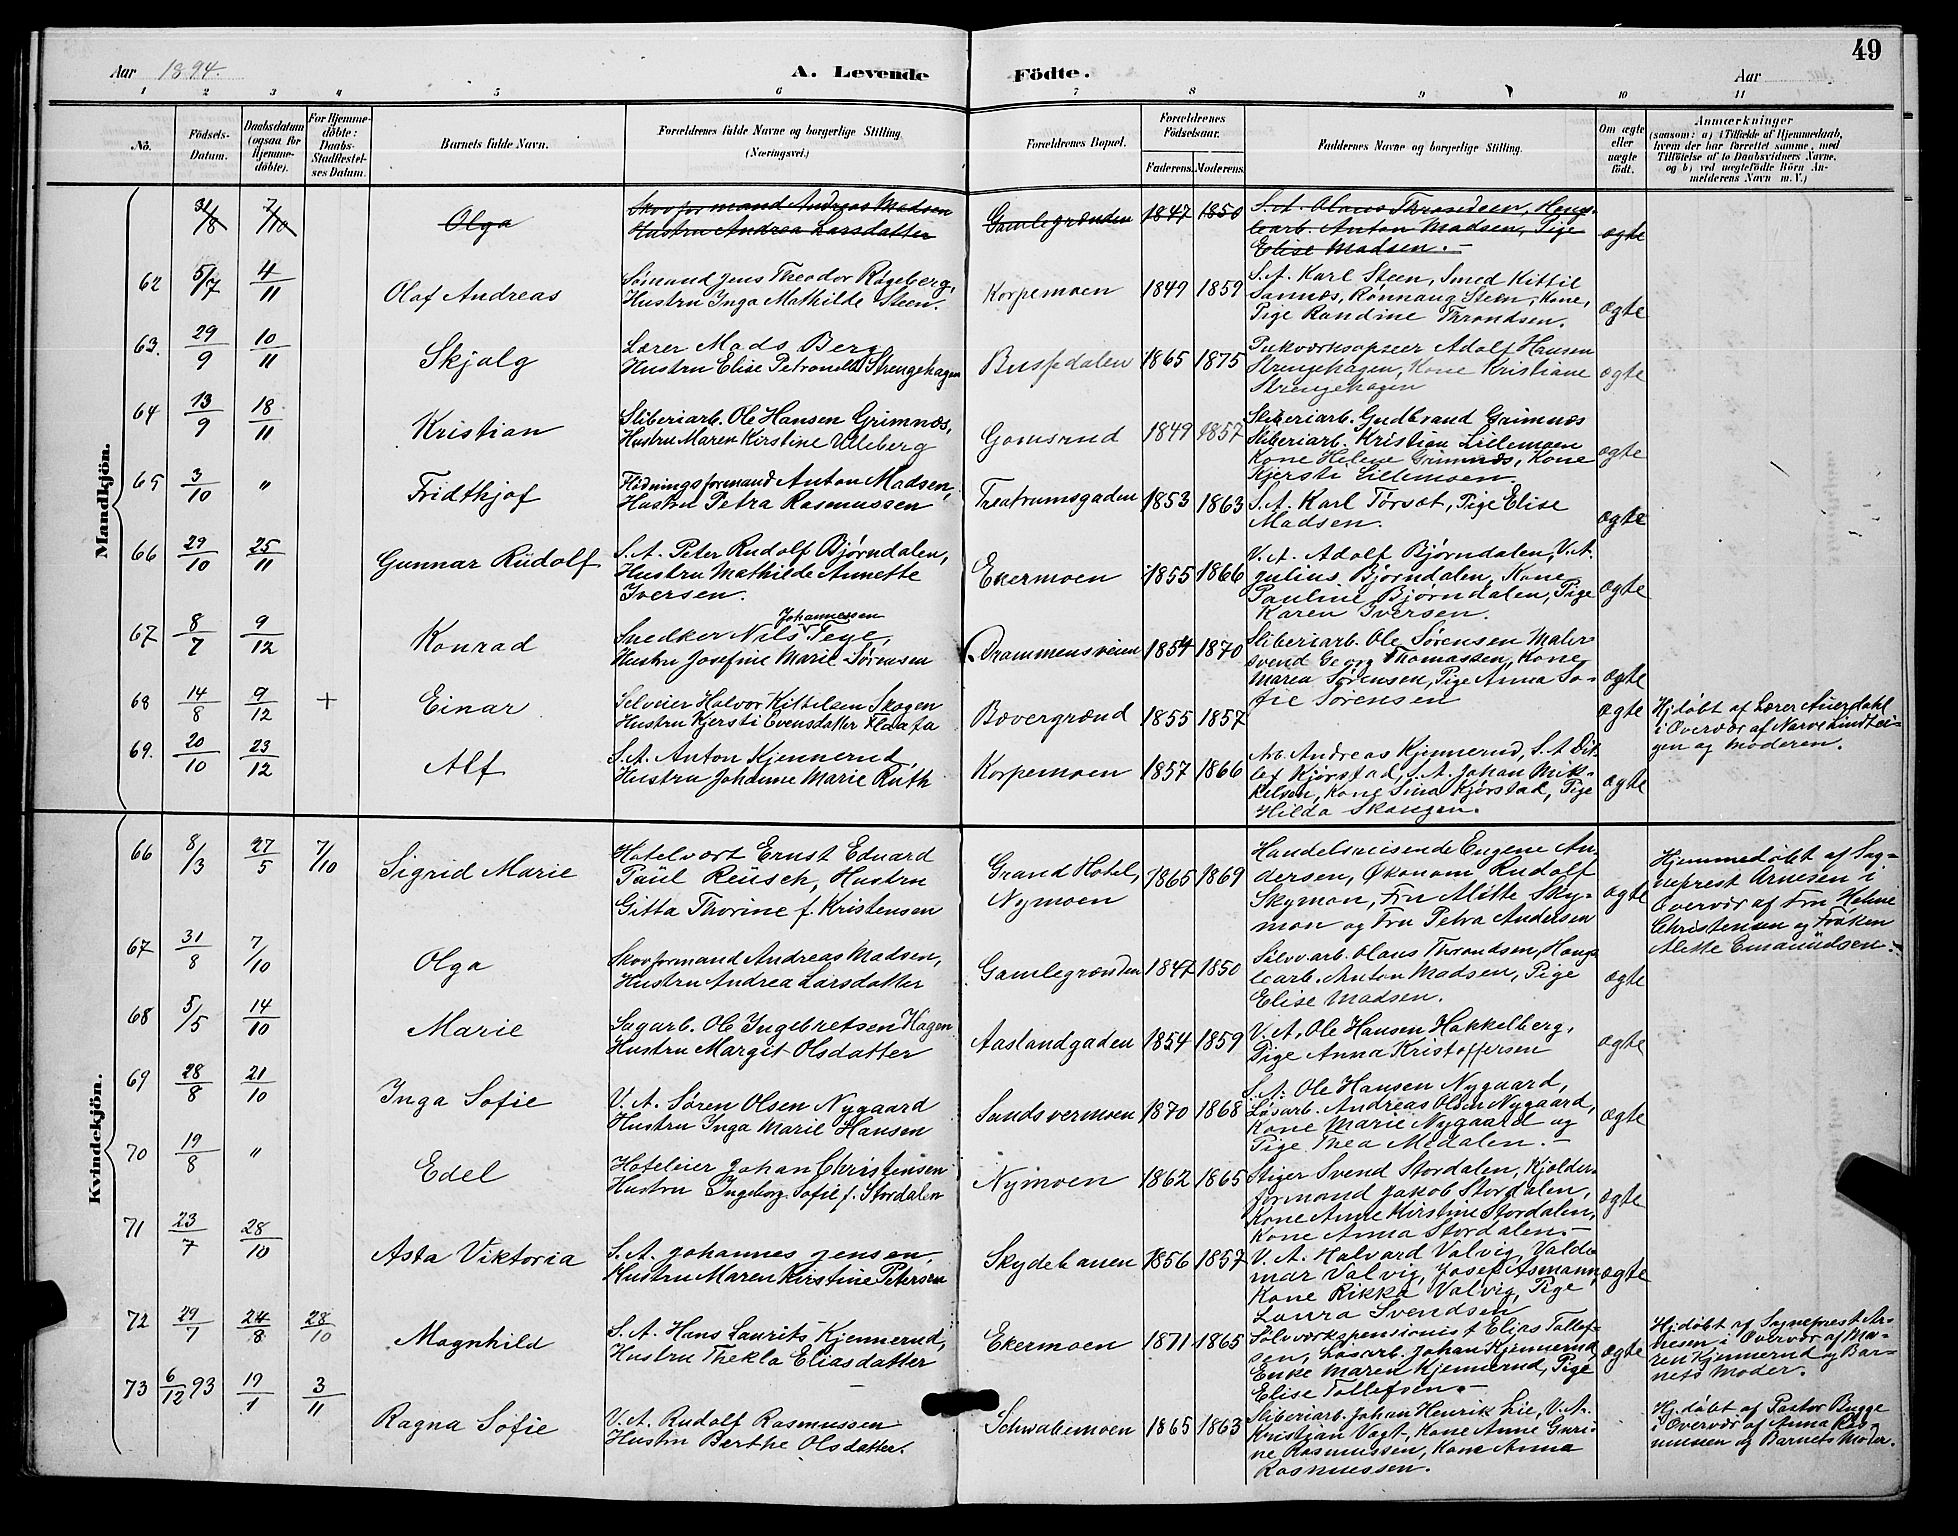 49
Aar 1894.
A. Levende Födte.
Aar
1 2 3 4 5 6 7 8 9 10 11
No.
Födsels-Datum.
Daabsdatum (ogsaa for Hjemmedøbte).
For Hjemmedøbte: Daabs-Stadfæstelses Datum.
Barnets fulde Navn.
Forældrenes fulde Navne og borgerlige Stilling. (Næringsvei.)
Forældrenes Bopæl.
Forældrenes Födselsaar.
Faderens. Moderens.
Faddernes Navne og borgerlige Stilling.
Om ægte eller uægte födt.
Anmærkninger
(saasom: a) i Tilfælde af Hjemmedaab,
hvem der har forrettet samme, med
Tilföielse af to Daabsvidners Navne,
og b) ved uægtefödte Börn Anmelderens Navn m. V.)
Mandkjön.
31/8 7/10 Olga
Skovformand Andreas Madsen
Hustru Andrea Larsdatter
Gamlegrænden 1847 1850
S. A. Olaus Thrandsen, Heng-
learb. Anton Madsen, Pige
Elise Madsen.
ægte
62 5/7 4/11 Olaf Andreas
Sømand Jens Theodor Røgeberg,
Hustru Inga Mathilde Steen.
Korpemoen 1849 1859
S. A. Karl Steen, Smed Kittil
Sannæs, Rønnaug Steen, Kone,
Pige Randine Thrandsen.
ægte
63. 29/9 10/11 Skjalg
Lærer Mads Berg
Hustru Elise Petronella Strengehagen
Bussedalen 1865 1875
Pukværksopseer Adolf Hansen
Strengehagen, Kone Kristiane
Strengehagen
ægte
64 13/9 18/11 Kristian
Sliberiarb. Ole Hansen Grimnæs,
Hustru Maren Kirstine Ulleberg
Gomsrud 1849 1857
Sliberiarb. Gudbrand Grimnæs
Sliberiarb. Kristian Lillemoen
Kone Helene Grimnæs, Kone
Kjersti Lillemoen.
ægte
65 3/10 " Fridthjof
Flødningsformand Anton Madsen,
Hustru Petra Rasmussen
Theatrumsgaden 1853 1863
S. A. Karl Torsæt, Pige Elise
Madsen.
ægte
66 29/10 25/11 Gunnar Rüdolf
S. A. Peter Rudolf Bjørndalen,
Hustru Mathilde Annette
Iversen.
Ekermoen 1855 1866
V. A. Adolf Bjørndalen, V. A.
Julius Bjørndalen, Kone
Pauline Bjørndalen, Pige
Karen Iversen.
ægte
67 8/7 9/12 Konrad
Johannessen
Snedker Nils Teye,
Hustru Josefine Marie Sørensen
Drammensveien 1854 1870
Sliberiarb. Ole Sørensen Maler-
svend Georg Thomassen, Kone
Maren Sørensen, Pige Anna So-
fie Sørensen
ægte
68 14/8 9/12 + Einar
Selveier Halvor Kittelsen Skogen
Hustru Kjersti Evensdatter Flaata
Bævergrænd 1855 1857
ægte
Hj.døbt af Lærer Auerdahl
i Overvær af Narve Lindtei-
gen og Moderen.
69. 20/10 23/12 Alf
S. A. Anton Kjennerud,
Hustru Johanne Marie Ruth
Korpemoen 1857 1866
Arb. Andreas Kjennerud, S. A. Dit-
lef Kjørstad, S. A. Johan Mik-
kelsen, Kone Sina Kjørstad, Pige
Hilda Skaugen.
ægte
Kvindekjön.
66 8/3 27/5 7/10 Sigrid Marie
Hotelvært Ernst Eduard
Paül Reüsch, Hustru
Gitta Thorine f. Kristensen
Grand Hotel,
Nymoen
1865 1869
Handelsreisende Eugene An-
dersen, Økonom Rudolf
Skymon, Fru Alette Sky-
mon og Fru Petra Andersen
ægte
Hjemmedøbt af Sog-
neprest Arnesen i
Overvær af Fru Helene
Christensen og Frøken
Alette Emanuelsen.
67 31/8 7/10 Olga
Skovformand Andreas Madsen,
Hustru Andrea Larsdatter
Gamlegrænden 1847 1850
Sølvarb. Olaus Thrandsen, Heng-
learb. Anton Madsen, Pige
Elise Madsen.
ægte
68 5/5 14/10 Marie
Sagarb. Ole Ingebretsen Hagen
Hustru Margit Olsdatter
Aaslandgaden 1854 1859
V. A. Ole Hansen Hakkelberg,
Pige Anna Kristoffersen
ægte
69 28/8 21/10 Inga Sofie
V. A. Søren Olsen Nygaard
Hustru Inga Marie Hansen
Sandsværmoen 1870 1868
S. A. Ole Hansen Nygaard,
Løsarb. Andreas Olsen Nygaard,
Kone Marie Nygaard og
Pige Thea Medalen.
ægte
70 19/8 " Edel
Hoteleier Johan Christensen
Hustru Ingeborg Sofie f. Stordalen
Nymoen 1862 1865
Stiger Svend Stordalen, Kjolder-
formand Jakob Stordalen,
Kone Anne Kirstine Stordalen,
Kone Anna Stordalen.
ægte
71 23/7 28/10 Asta Viktoria
S. A. Johannes Jensen,
Hustru Maren Kirstine Petersen
Skydebanen 1856 1857
V. A. Halvard Valvig, Valde-
mar Valvig, Josef Asmann,
Kone Rikka Valvig, Pige
Laura Svendsen
ægte
72 29/7 24/8 28/10 Magnhild
S. A. Hans Laurits Kjennerud,
Hustru Thekla Eliasdatter
Ekermoen 1871 1865
Sølvværkspensionist Elias Tollef-
sen, Løsarb. Johan Kjennerud,
Enke Maren Kjennerud, Pige
Elise Tollefsen.
ægte
Hj.døbt af Sogneprest Ar-
nesen i Overvær af Ma-
ren Kjennerud og Bar-
nets Moder.
73 6/12 93 19/1 3/11 Ragna Sofie
V. A. Rudolf Rasmussen
Hustru Berthe Olsdatter.
Schwabemoen 1865 1863
Sliberiarb. Johan Henrik Lie, V. A.
Kristian Vagt, Kone Anne Guri-
ne Rasmussen, Kone Anna
Rasmussen.
Hj.døbt af Pastor Bugge
i Overvær af Anna Ras-
mussen og Barnets Moder.